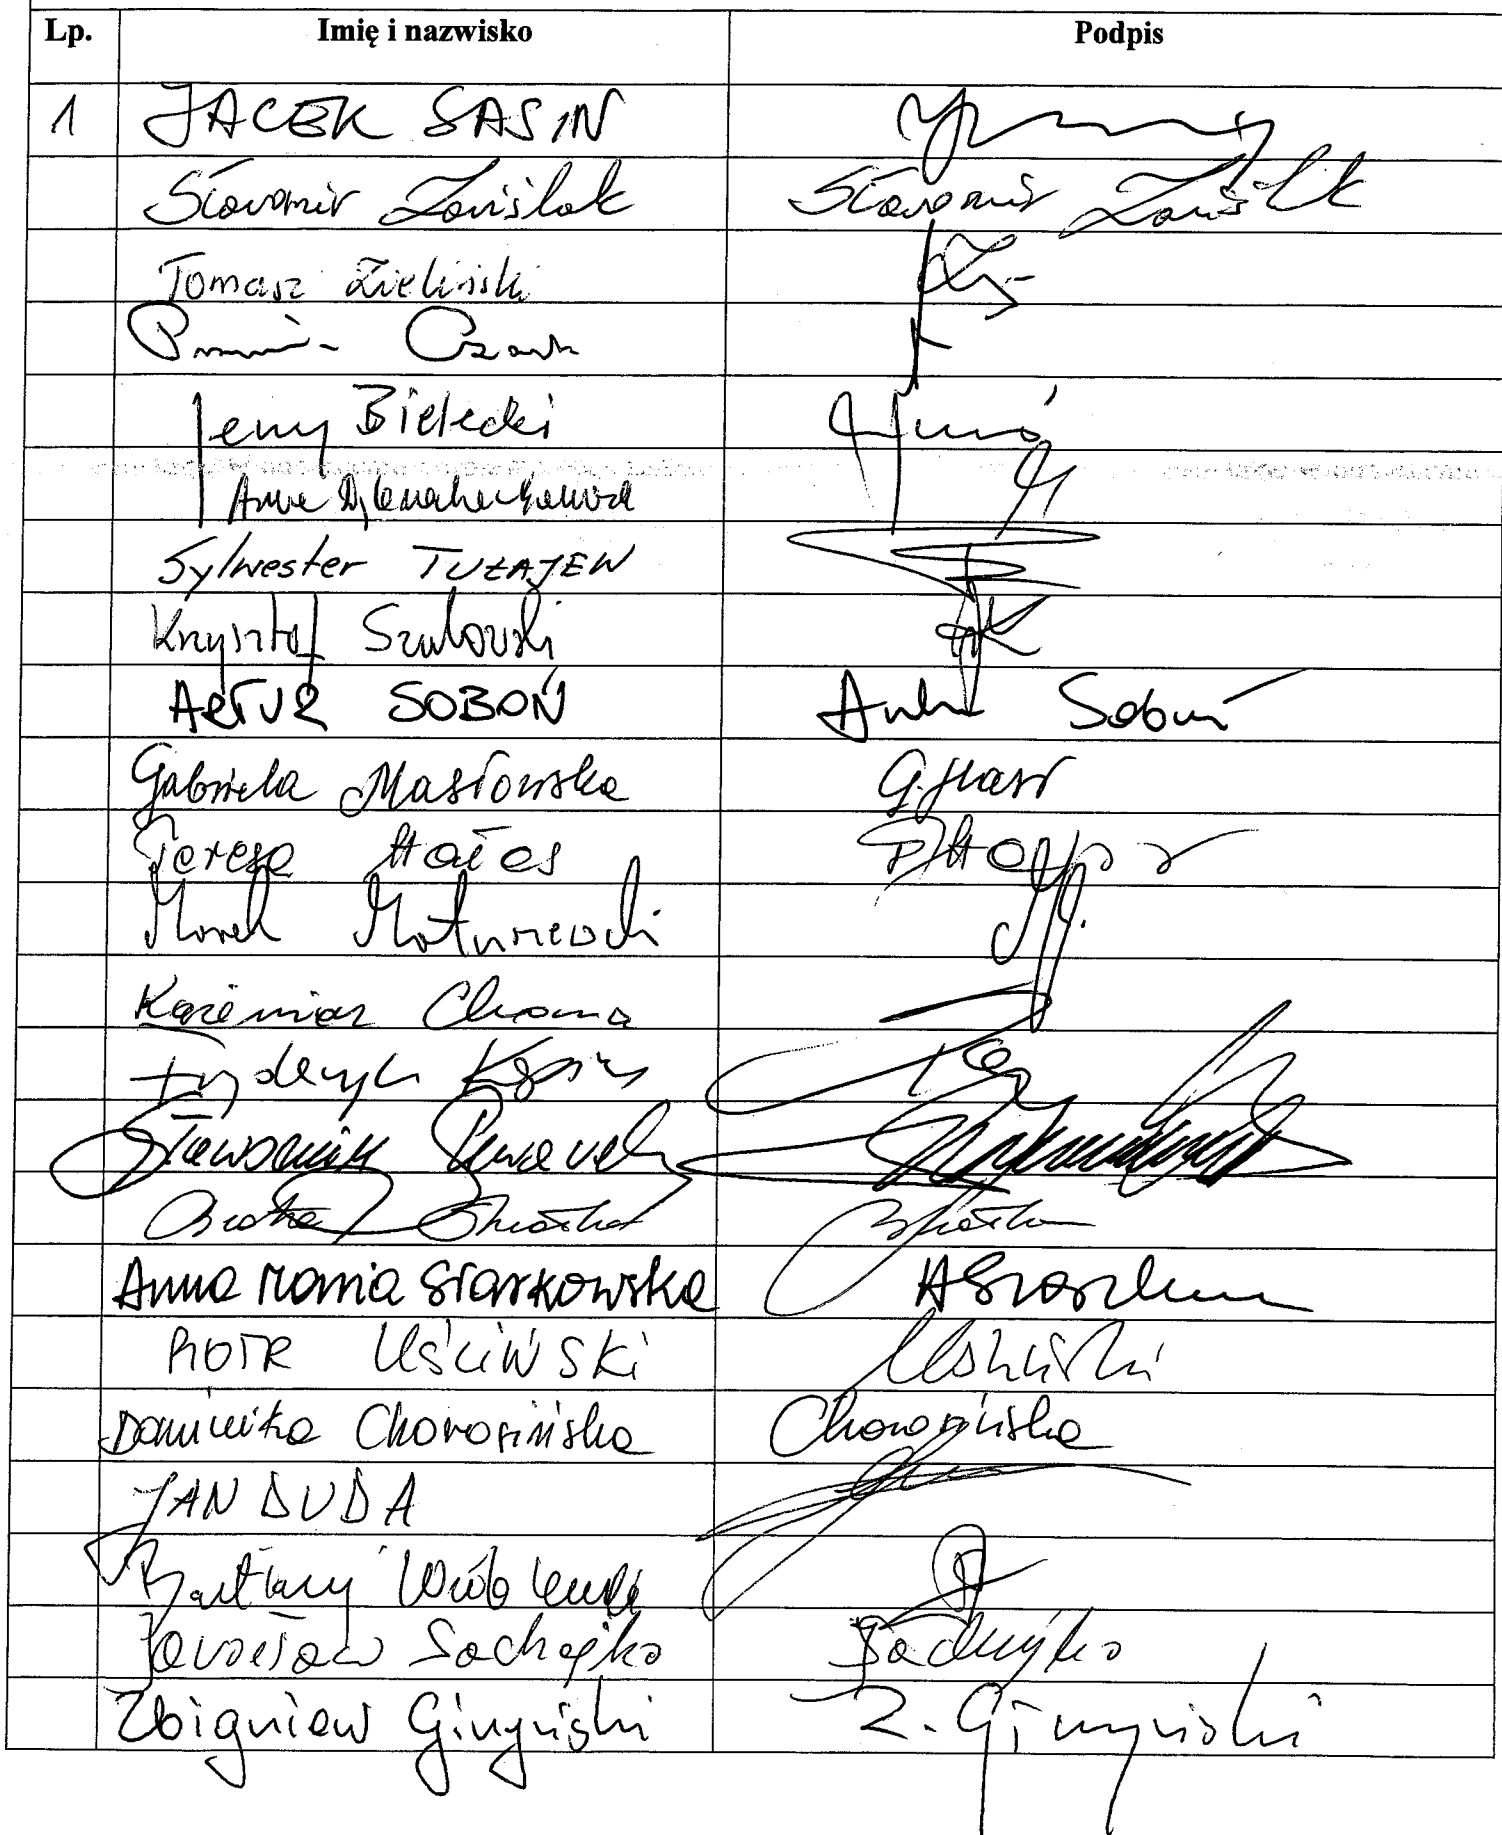 Lp. Imię i nazwisko Podpis
1 JACEK SASIN
Sławomir Zawiślak Sławomir Zawiślak
Tomasz Zieliński
Czarn
Jerzy Bielecki
Anna
Sylwester TUŁAJEW
Krzysztof Szulowski
ARTUR SOBOŃ Artur Soboń
Gabriela Masłowska G. Masł
Teresa Hałas T. Hałas
Marek Matuszewski
Kazimierz Choma
Fryderyk Kapinos
Sławomir
Beata Strzałka
Anna Maria Siarkowska ASiarkowska
PIOTR UŚCIŃSKI Uściński
Dominika Chorosińska Chorosińska
JAN DUDA
Bartłomiej Wróblewski
Jarosław Sachajko Sachajko
Zbigniew Giżyński Z. Giżyński